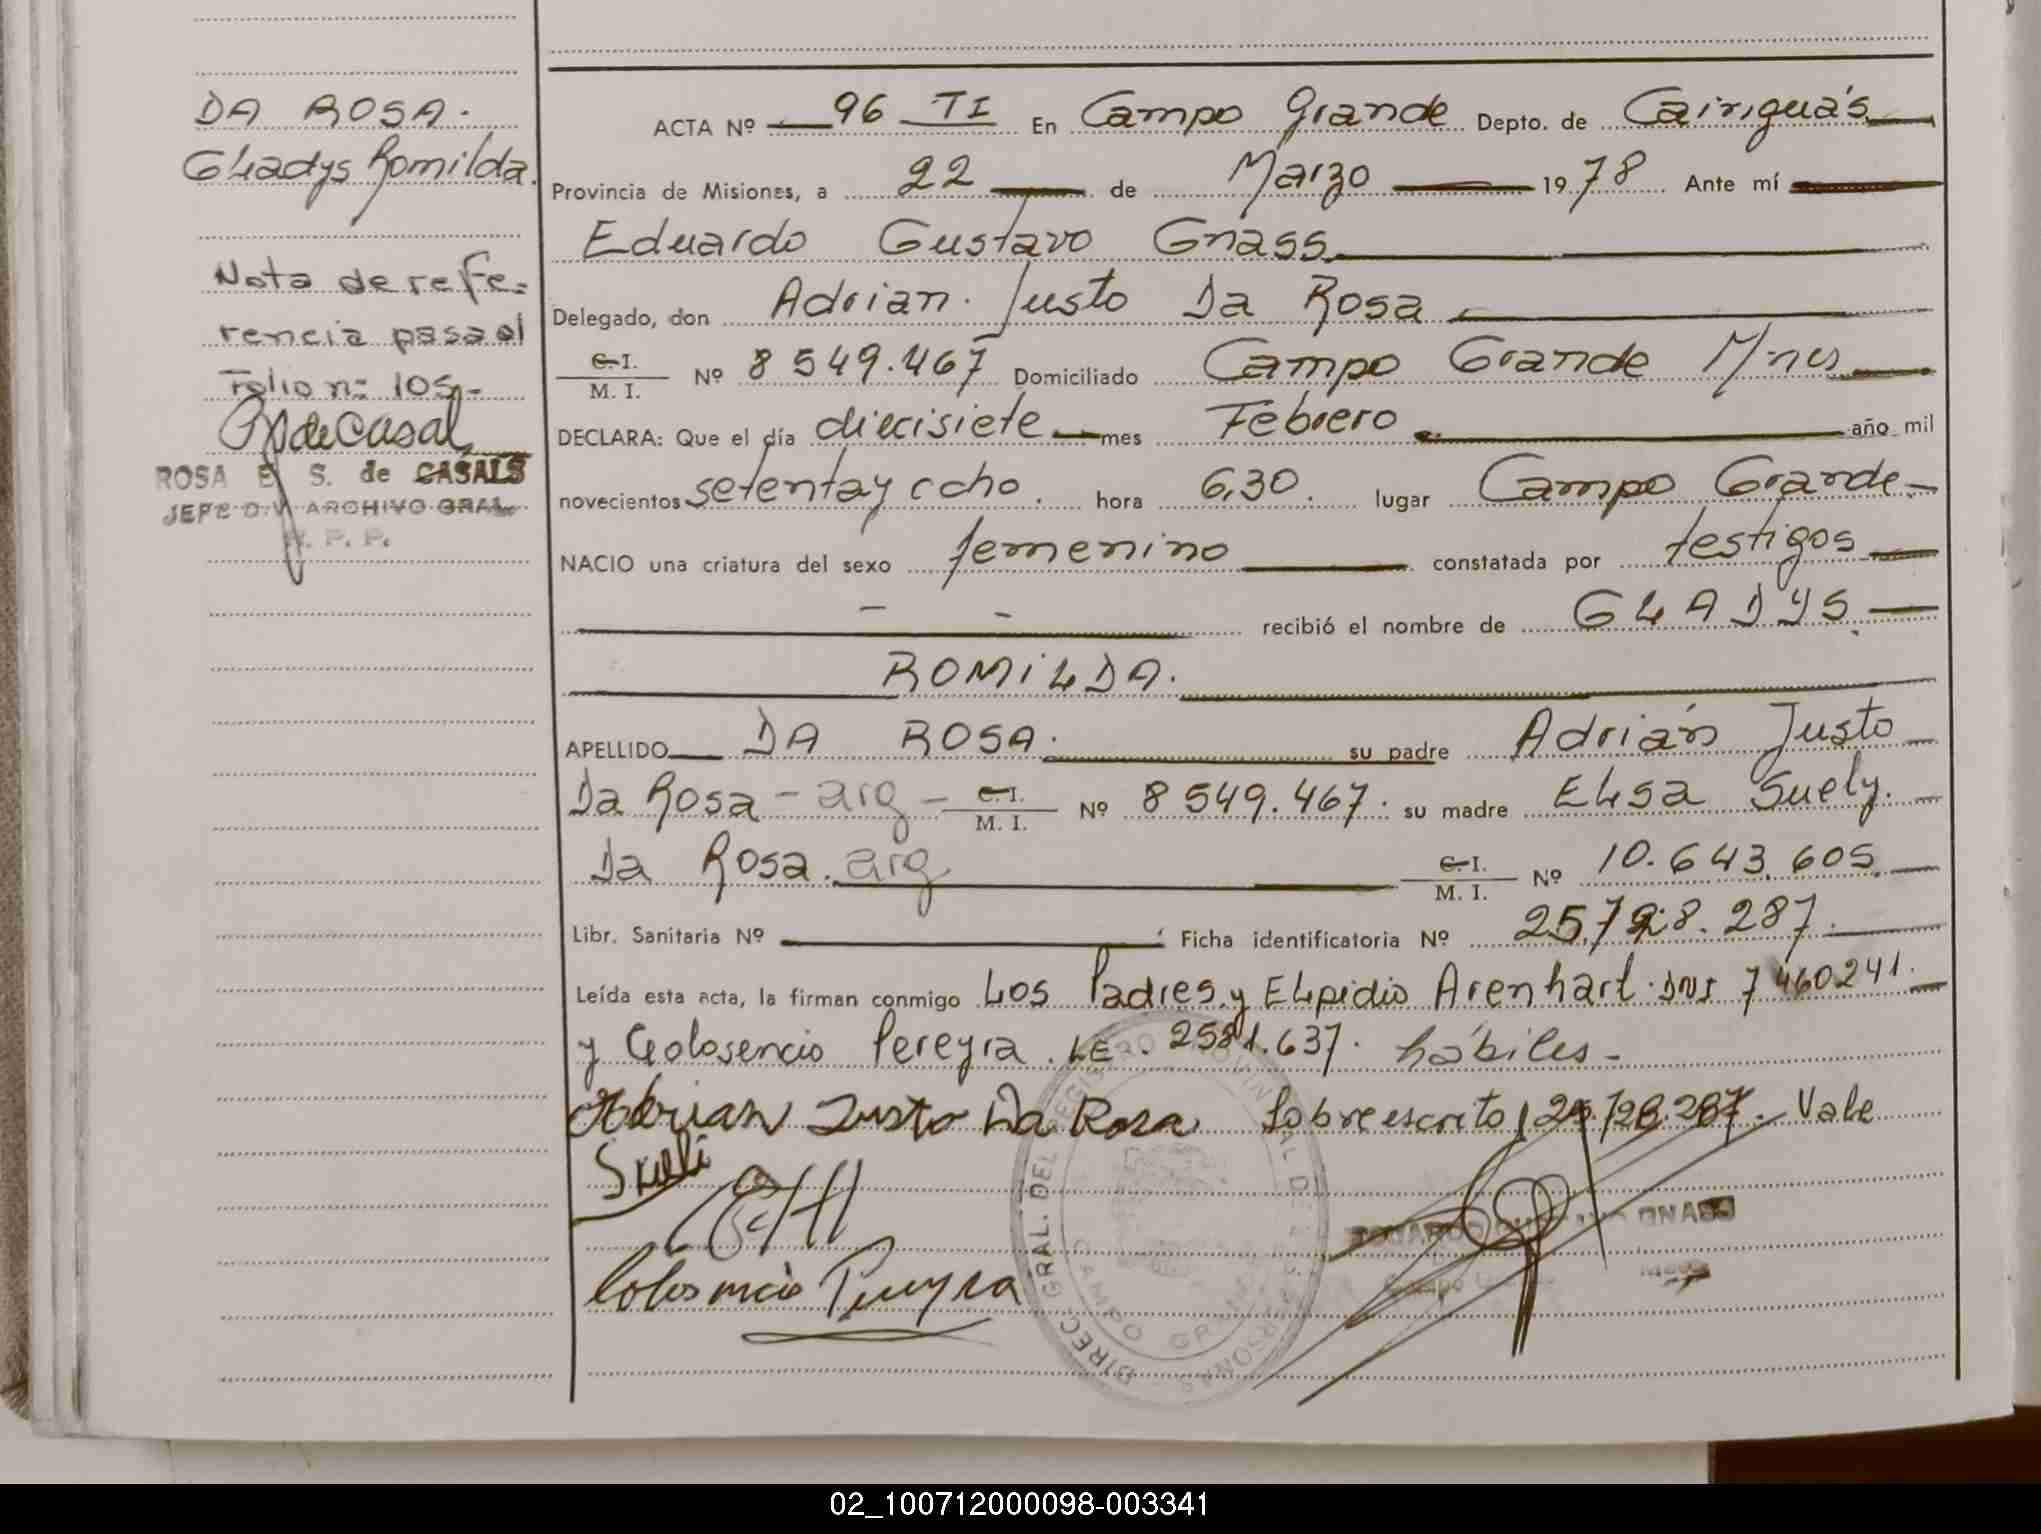 DA ROSA.
Gladys Romilda.
Nota de refe-
rencia pasa al
Folio nº 105.-
R de Casal
ROSA E. S. de CASALS
JEFE DIV. ARCHIVO GRAL.
R. P. P.
ACTA Nº 96 TI En Campo Grande Depto. de Cainguás
Provincia de Misiones, a 22 de Marzo 1978 Ante mí
Eduardo Gustavo Gnass
Delegado, don Adrian Justo Da Rosa
C.I. / M. I. Nº 8549.467 Domiciliado Campo Grande Mnes
DECLARA: Que el día diecisiete mes Febrero año mil
novecientos setenta y ocho. hora 6,30. lugar Campo Grande.
NACIO una criatura del sexo femenino constatada por testigos
recibió el nombre de GLADYS
ROMILDA.
APELLIDO DA ROSA. su padre Adrián Justo
Da Rosa - arg - C.I. / M. I. Nº 8549.467. su madre Elsa Suely.
Da Rosa. arg C.I. / M. I. Nº 10.643.605
Libr. Sanitaria Nº Ficha identificatoria Nº 25.728.287.
Leída esta acta, la firman conmigo Los Padres y Elpidio Arenhart. DNI 7460241.
y Golosencio Pereyra. LE. 2581.637. hábiles-
Adrian Justo Da Rosa Sobreescrito, 25.728.287. Vale
Sueli
Colosencio Pereyra
EDUARDO GUSTAVO GNASS
DIREC. GRAL. DEL REGISTRO PROVINCIAL DE LAS PERSONAS
CAMPO GRANDE
02_100712000098-003341